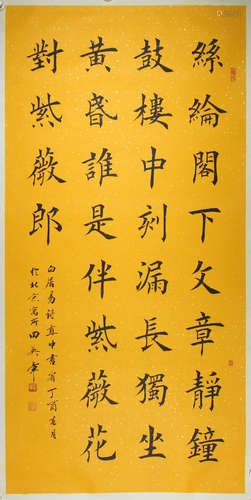 絲綸閣下文章靜鐘
鼓樓中刻漏長獨坐
黃昏誰是伴紫薇花
對紫薇郎
白居易詩直中書省丁酉年月
於北京寓所田英章